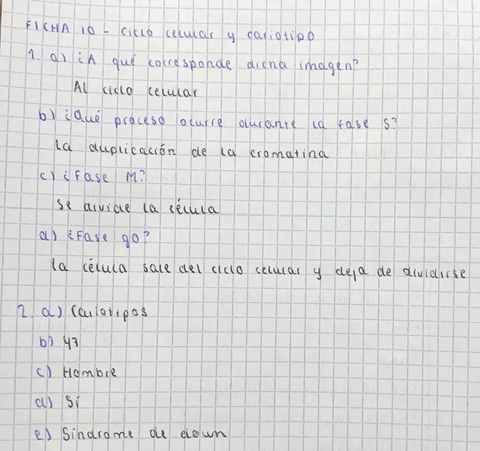 FICHA 10 - ciclo celular y cariotipo
1. a) ¿A qué corresponde dicha imagen?
Al ciclo celular
b) ¿Qué proceso ocurre durante la fase S?
La duplicación de la cromatina
c) ¿Fase M?
Se divide la célula
d) ¿Fase g0?
la célula sale del ciclo celular y deja de dividirse
2. a) Cariotipos
b) 47
c) Hombre
d) Sí
e) Síndrome de down